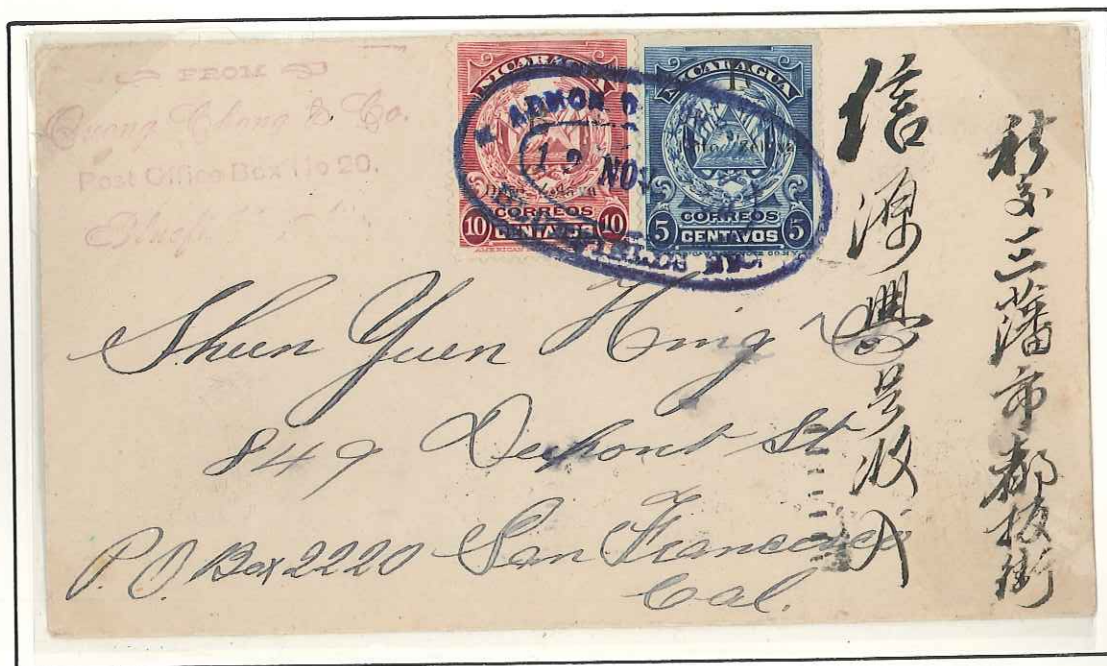 FROM
Quong Chong & Co.
Post Office Box No 20.
NICARAGUA
CORREOS
10 CENTAVOS 10
NICARAGUA
CORREOS
5 CENTAVOS 5
ADMON D
NOV
Shun Yuen Hing
849 Dupont St
P.O. Box 2220 San Francisco
Cal.
三藩市都板街
信源興号收入